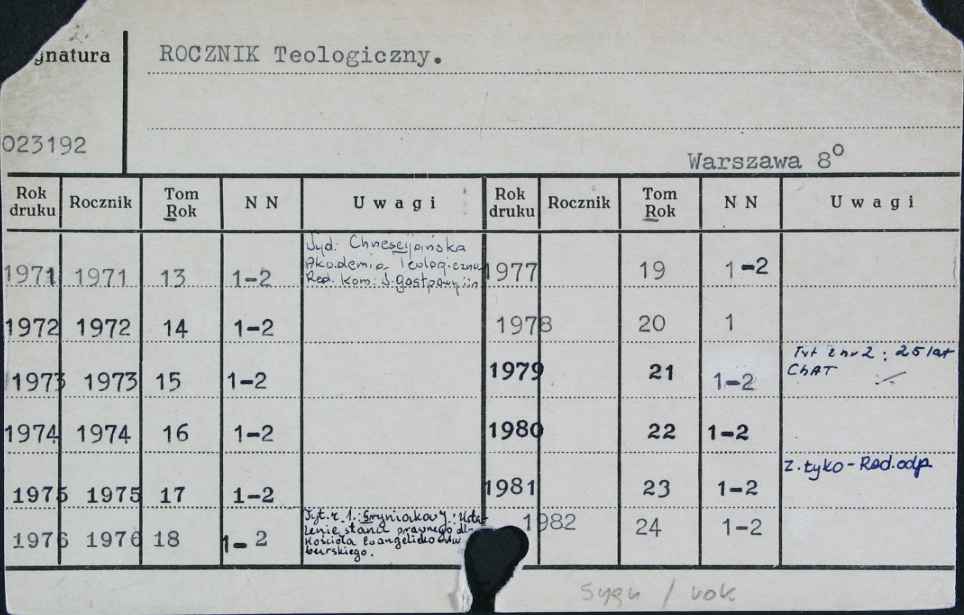 gnatura
ROCZNIK Teologiczny.
023192
Warszawa 8⁰
Rok druku Rocznik Tom Rok N N Uwagi Rok druku Rocznik Tom Rok N N Uwagi
1971 1971 13 1-2
Wyd. Chrześcijańska
Akademia Teologiczna
Red. kom:
1977 19 1-2
1972 1972 14 1-2
1978 20 1
1973 1973 15 1-2
1979 21 1-2
Tyt z nr 2: 25 lat
ChAT
1974 1974 16 1-2
1980 22 1-2
1975 1975 17 1-2
1981 23 1-2
Z. tyko - Red. odp
1976 1976 18 1-2
Tyt. 1.
stanu prawnego
Kościoła Ewangelicko
burskiego.
1982 24 1-2
Sygn / rok